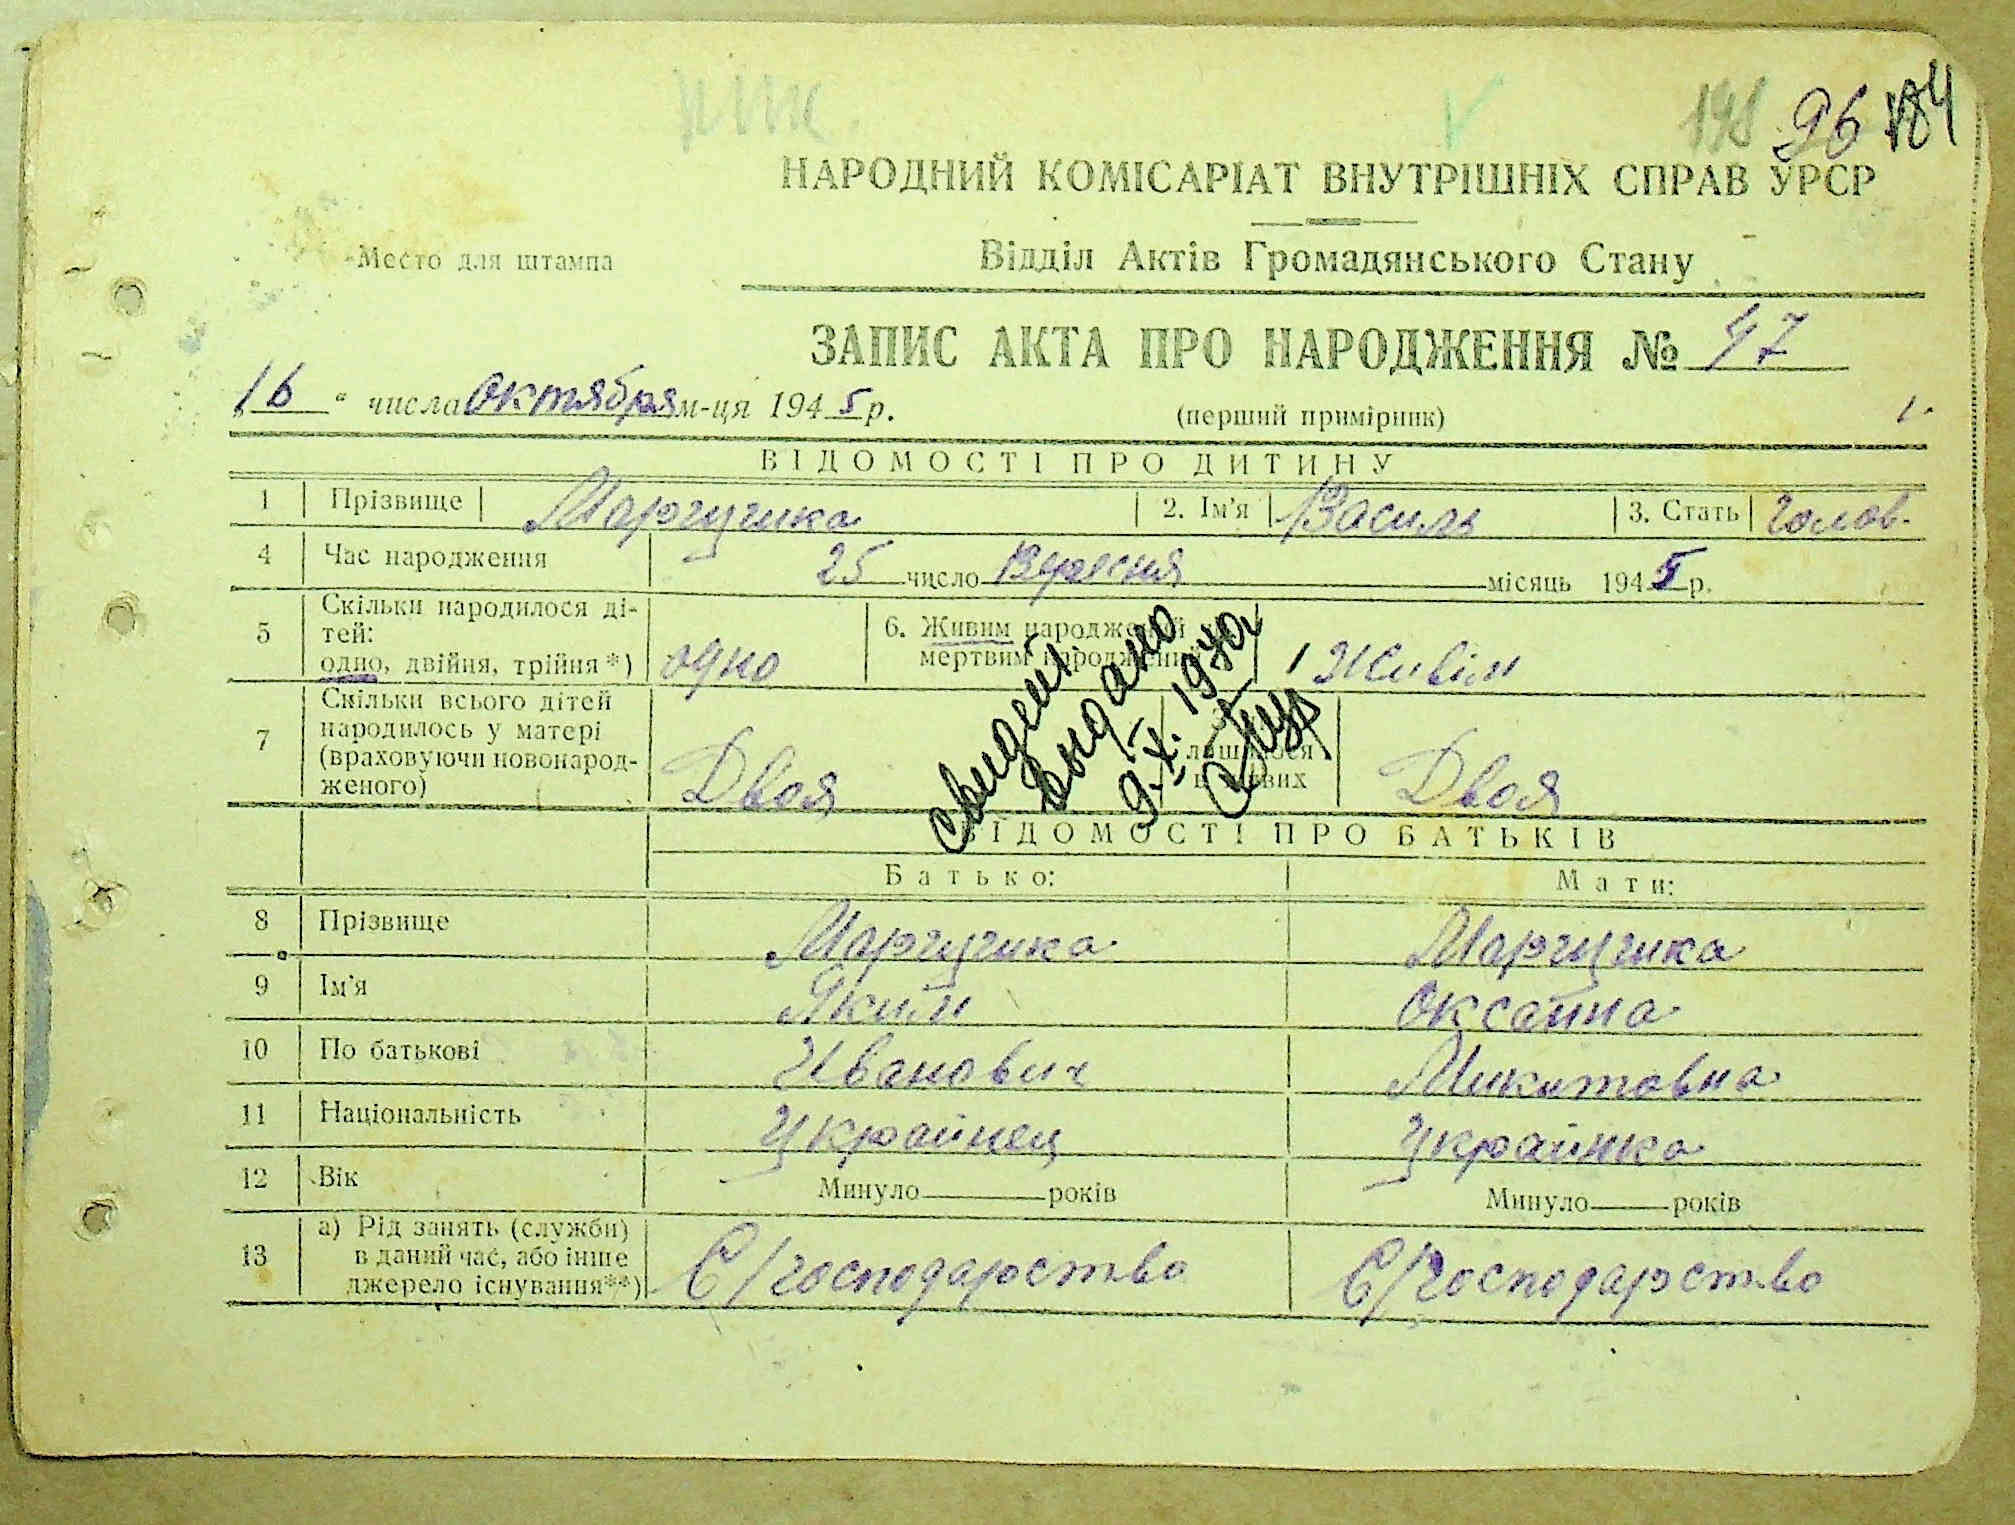 96 184
НАРОДНИЙ КОМІСАРІАТ ВНУТРІШНІХ СПРАВ УРСР
Место для штампа
Відділ Актів Громадянського Стану
ЗАПИС АКТА ПРО НАРОДЖЕННЯ № 47
16 " числа Октября м-ця 1945 р.
(перший примірник)
ВІДОМОСТІ ПРО ДИТИНУ
1 Прізвище Маргучика 2. Ім'я Василь 3. Стать Чолов.
4 Час народження 25 число Вересня місяць 1945 р.
5 Скільки народилося ді-
тей:
одно, двійня, трійня*) одно
6. Живим народжений
мертвим народжений 1 Живім
7 Скільки всього дітей
народилось у матері
(враховуючи новонарод-
женого) Двоя
Двоя
свидет.
выдано
9.X.1970
ВІДОМОСТІ ПРО БАТЬКІВ
Батько: Мати:
8 Прізвище Маргучика Маргучика
9 Ім'я Яким Оксанна
10 По батькові Иванович Микитовна
11 Національність Украинец Украинка
12 Вік Минуло років Минуло років
13 а) Рід занять (служби)
в даний час, або інше
джерело існування**) С/господарство С/господарство